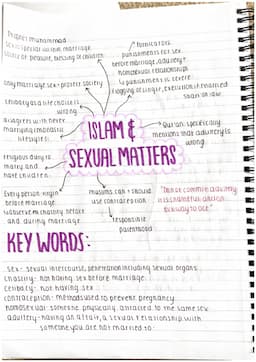 Prophet Muhammad
sexual
marriage
source of pleasure, blessing of children
punishments for sex
before marriage, adultery +
homosexual relationships
↳ punishment is severe
flogging of single, execution if married
only marriage sex = protect society
celibacy as a life choice is
wrong
disagrees with never
marrying/monastic
lifestyles
religious duty to
marry and
have children.
Every person virgin
before marriage.
before
and during marriage.
ISLAM &
SEXUAL MATTERS
Qur'an specifically
mentions that adultery is
wrong
muslims can + should
use contraception
↳ responsible
parenthood
"Do not commit adultery
it is shameful
way to act"
KEY WORDS:
sex - sexual intercourse, penetration including sexual organs
chastity - not having sex before marriage
celibacy - not having sex
contraception - methods used to prevent pregnancy
homosexual: someone physically attracted to the same sex
adultery - having an affair, a sexual relationship with
someone you are not married to.